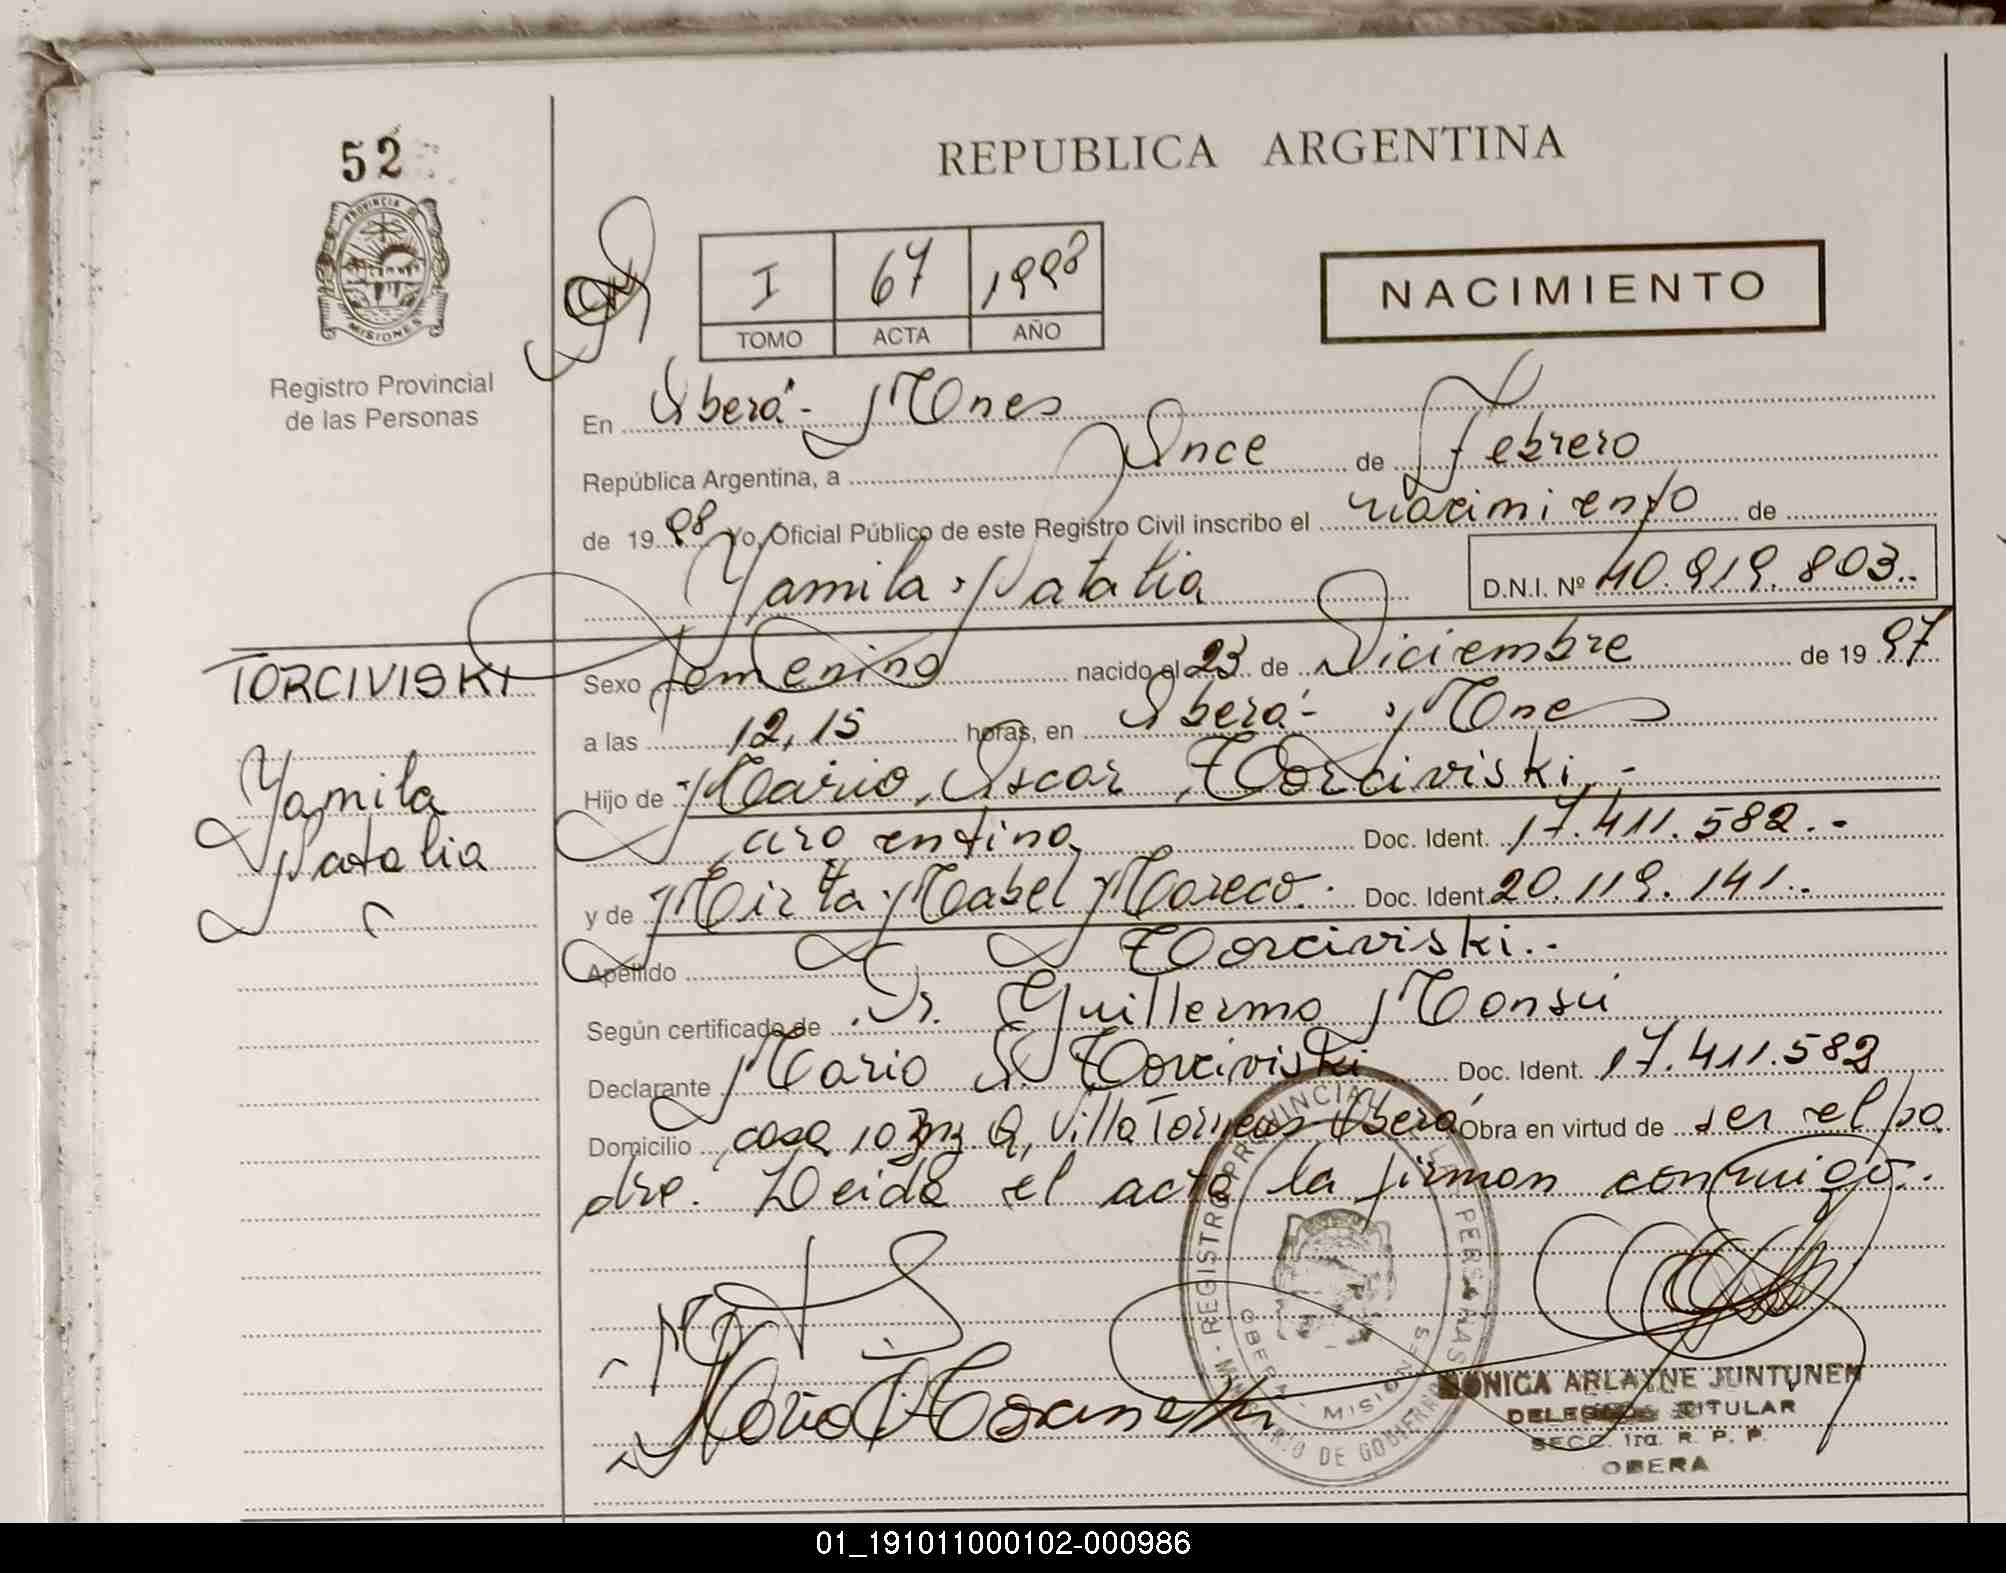 52
PROVINCIA
MISIONES
Registro Provincial
de las Personas
REPUBLICA ARGENTINA
I 67 1998
TOMO ACTA AÑO
NACIMIENTO
En Oberá - Mnes
República Argentina, a Once de Febrero
de 19 98 Yo, Oficial Público de este Registro Civil inscribo el nacimiento de
Yamila Natalia D.N.I. Nº 40.919.803..
TORCIVISKI
Yamila
Natalia
Sexo femenino nacido el 23 de Diciembre de 19 97
a las 12,15 horas, en Oberá - Mnes
Hijo de Mario Oscar Torciviski -
argentino Doc. Ident. 17.411.582.-
y de Mirta Mabel Moreco. Doc. Ident. 20.119.141..
Apellido Torciviski..
Según certificado de Dr. Guillermo Monsú
Declarante Mario O. Torciviski Doc. Ident. 17.411.582
Domicilio casa 10 Mz Q, Villa Torneus Oberá Obra en virtud de ser el pa
dre. Leida el acta la firman conmigo..
REGISTRO PROVINCIAL DE LAS PERSONAS - MINISTERIO DE GOBIERNO
OBERA - MISIONES
MONICA ARLAYNE JUNTUNEN
DELEGADA TITULAR
SECC. 1ra. R. P. P.
OBERA
01_191011000102-000986